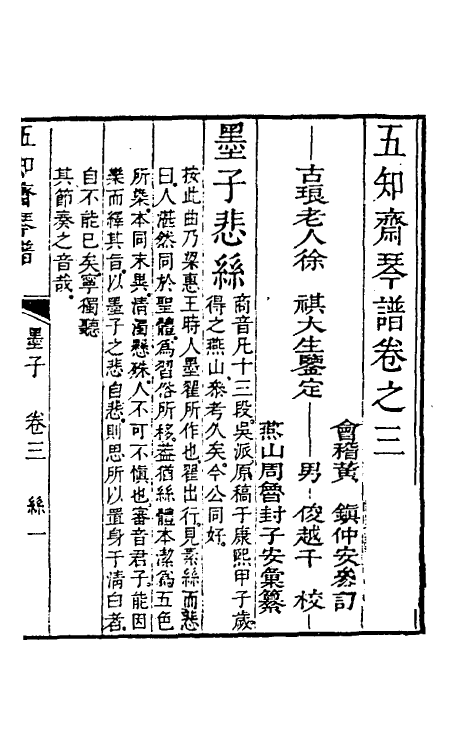 五知齋琴譜卷之三
會稽黃　鎮仲安參訂
古琅老人徐　祺大生鑒定　男　俊越千　校
燕山周魯封子安彙纂
墨子悲絲
商音凡十三段吳派原稿于康熙甲子歲
得之燕山叅考久矣今公同好
按此曲乃梁惠王時人墨翟所作也翟出行見素絲而悲
曰人湛然同於聖體為習俗所移葢猶絲體本潔為五色
所染本同末異清濁懸殊人不可不慎也審音君子能因
樂而釋其旨以墨子之悲自悲則思所以置身于清白者
自不能已矣寧獨聽
其節奏之音哉
五知齋琴譜
墨子　卷三　絲一